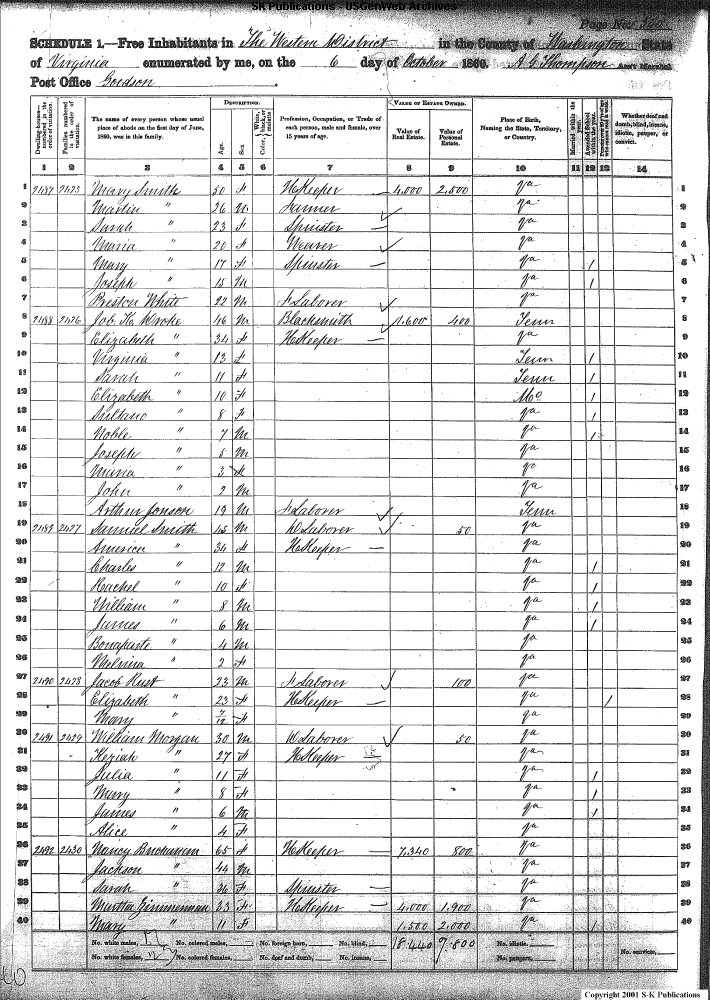 SK Publications - USGenWeb Archives
Page No.
SCHEDULE 1.—Free Inhabitants in The Western District in the County of Washington State
of Virginia enumerated by me, on the 6 day of October 1860. A. G. Thompson Ass't Marshal.
Post Office Goodson
DESCRIPTION. VALUE OF ESTATE OWNED.
Dwelling-houses—numbered in the order of visitation. Families numbered in the order of visitation. The name of every person whose usual place of abode on the first day of June, 1860, was in this family. Age. Sex. Color, White, black, or mulatto. Profession, Occupation, or Trade of each person, male and female, over 15 years of age. Value of Real Estate. Value of Personal Estate. Place of Birth, Naming the State, Territory, or Country. Married within the year. Attended School within the year. Whether deaf and dumb, blind, insane, idiotic, pauper, or convict.
1 2 3 4 5 6 7 8 9 10 11 12 13 14
1 2487 2423 Mary Smith 50 f H Keeper — 4,000 2,500 Va 1
2 Martin " 26 m Farmer Va 2
3 Sarah " 23 f Spinster — Va 3
4 Maria " 20 f Weaver Va 4
5 Mary " 17 f Spinster — Va / 5
6 Joseph " 15 m Va / 6
7 Preston White 22 m F Laborer Va 7
8 2488 2426 Job K. Wroke 46 m Blacksmith 1,600 400 Tenn 8
9 Elizabeth " 34 f H Keeper — Va 9
10 Virginia " 13 f Tenn / 10
11 Sarah " 11 f Tenn / 11
12 Elizabeth " 10 f Mo / 12
13 Sultano " 8 f Va / 13
14 Noble " 7 m Va / 14
15 Joseph " 5 m Va 15
16 Maria " 3 f Va 16
17 John " 2 m Va 17
18 Arthur Jonson 19 m F Laborer Tenn 18
19 2489 2427 Samuel Smith 45 m D Laborer 50 Va 19
20 America " 34 f H Keeper — Va 20
21 Charles " 12 m Va / 21
22 Rachel " 10 f Va / 22
23 William " 8 m Va / 23
24 James " 6 m Va / 24
25 Bonaparte " 4 m Va 25
26 Melvina " 2 f Va 26
27 2490 2428 Jacob Rust 23 m F Laborer 100 Va 27
28 Elizabeth " 23 f H Keeper — Va / 28
29 Mary " 7/12 f Va 29
30 2491 2429 William Morgan 30 m D Laborer 50 Va 30
31 Keziah " 27 f H Keeper Va 31
32 Julia " 11 f Va / 32
33 Mary " 8 f Va / 33
34 James " 6 m Va / 34
35 Alice " 4 f Va 35
36 2492 2430 Nancy Buchanan 65 f H Keeper — 7,340 800 Va 36
37 Jackson " 44 m Va 37
38 Sarah " 36 f Spinster — Va 38
39 Martha Zimmerman 33 f H Keeper — 4,000 1,900 Va 39
40 Mary " 11 f 1,500 2,000 Va / 40
No. white males, 17 No. colored males, No. foreign born, No. blind, 18,440 7,800 No. idiotic. No. convicts,
No. white females, No. colored females, No. deaf and dumb, No. insane, No. paupers,
Copyright 2001 S-K Publications